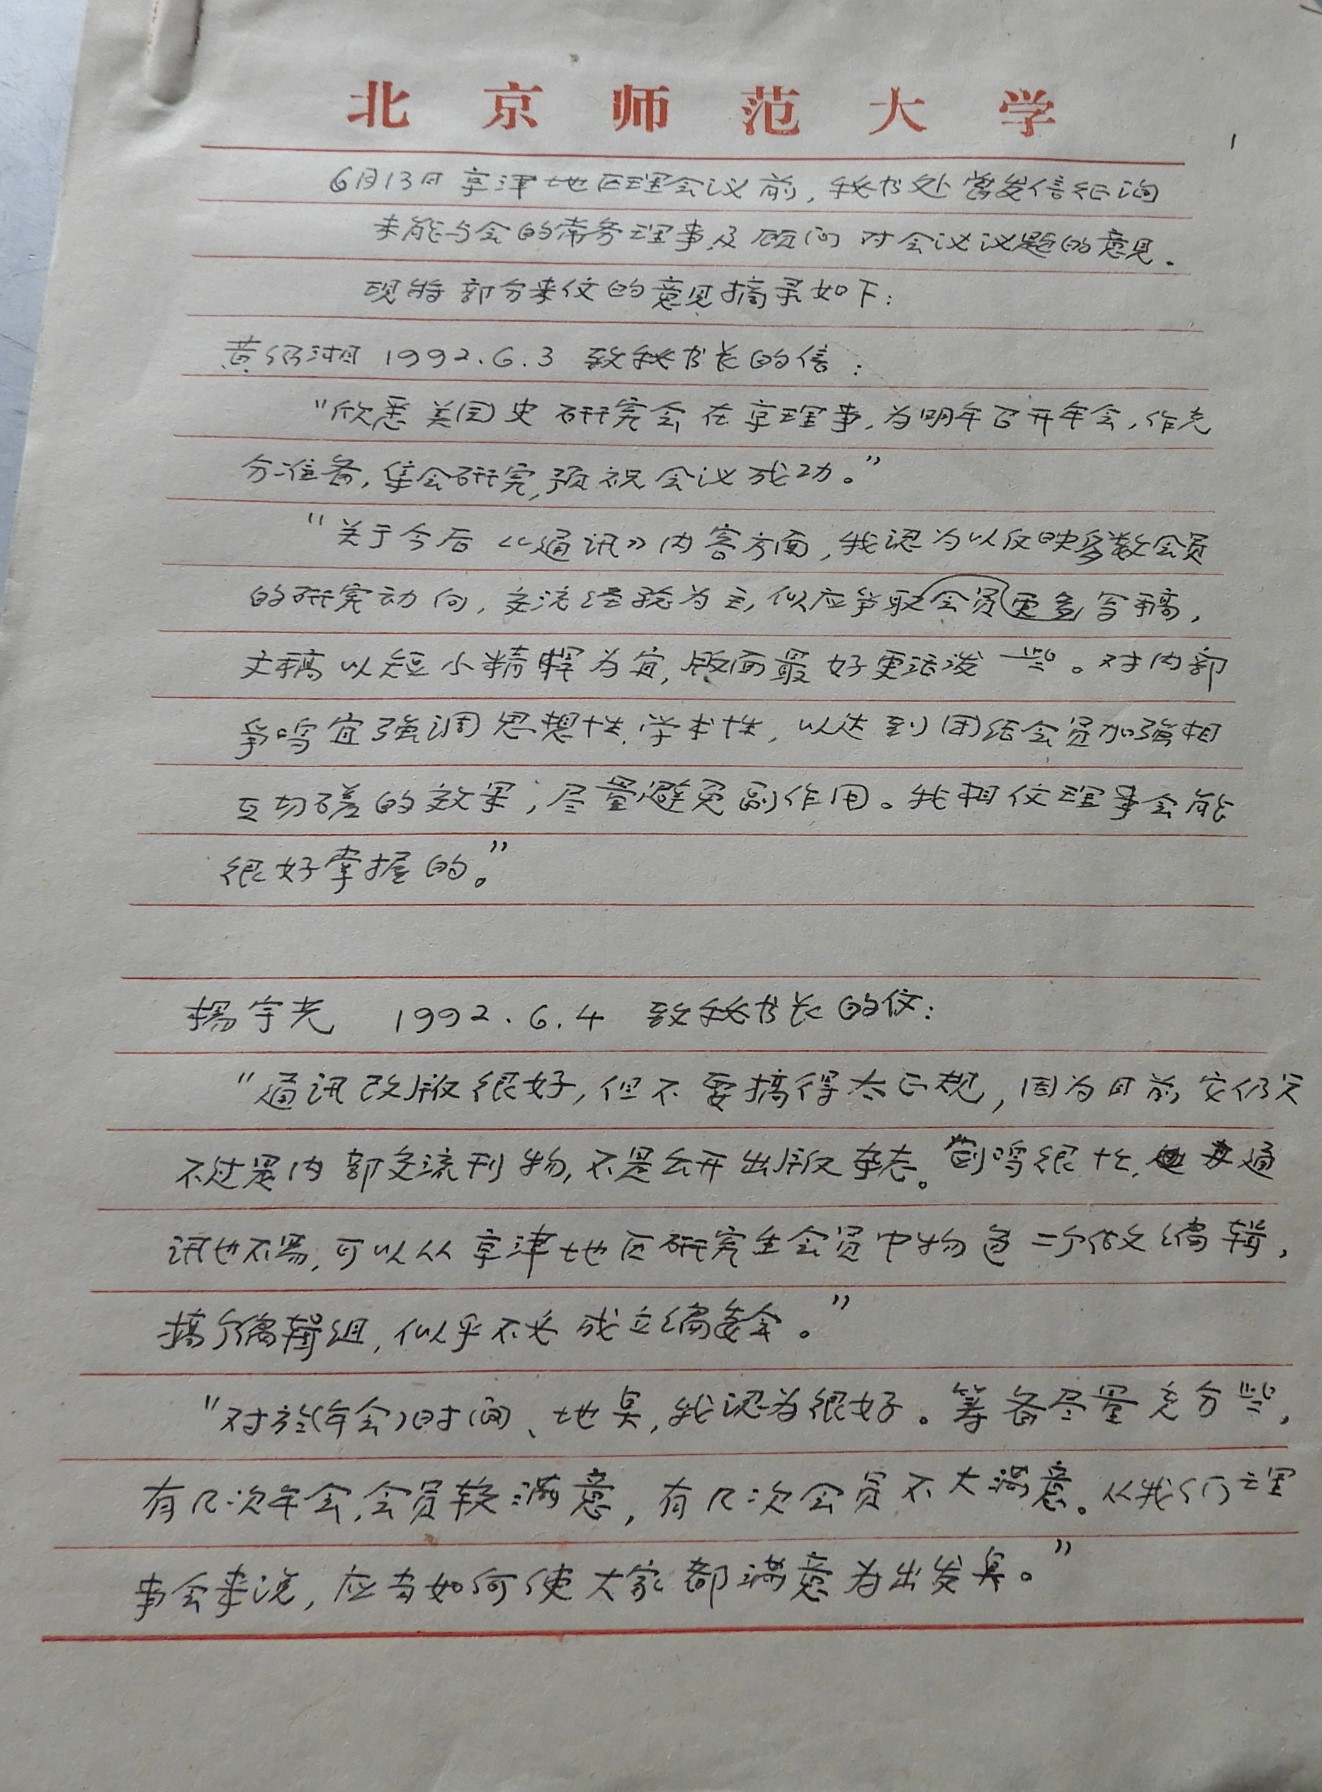 北京师范大学
1
6月13日京津地区理会议前，秘书处曾发信征询
未能与会的常务理事及顾问对会议议题的意见。
现将部分来信的意见摘录如下：
黄绍湘 1992.6.3 致秘书长的信：
“欣悉美国史研究会在京理事，为明年召开年会，作充
分准备，集会研究，预祝会议成功。”
“关于今后《通讯》内容方面，我认为以反映多数会员
的研究动向，交流经验为主，似应争取会员更多写稿，
文稿以短小精悍为宜，版面最好更活泼一些。对内部
争鸣宜强调思想性、学术性，以达到团结会员加强相
互切磋的效果，尽量避免副作用。我相信理事会能
很好掌握的。”
杨宇光 1992.6.4 致秘书长的信：
“通讯改版很好，但不要搞得太正规，因为目前它仍只
不过是内部交流刊物，不是公开出版杂志。鸣很忙，通
讯也不易，可以从京津地区研究生会员中物色一二个做编辑，
搞个编辑组，似乎不必成立编委会。”
“对於(年会)时间、地点，我认为很好。筹备尽量充分些，
有几次年会，会员较满意，有几次会员不大满意。从我们理
事会来说，应当如何使大家都满意为出发点。”